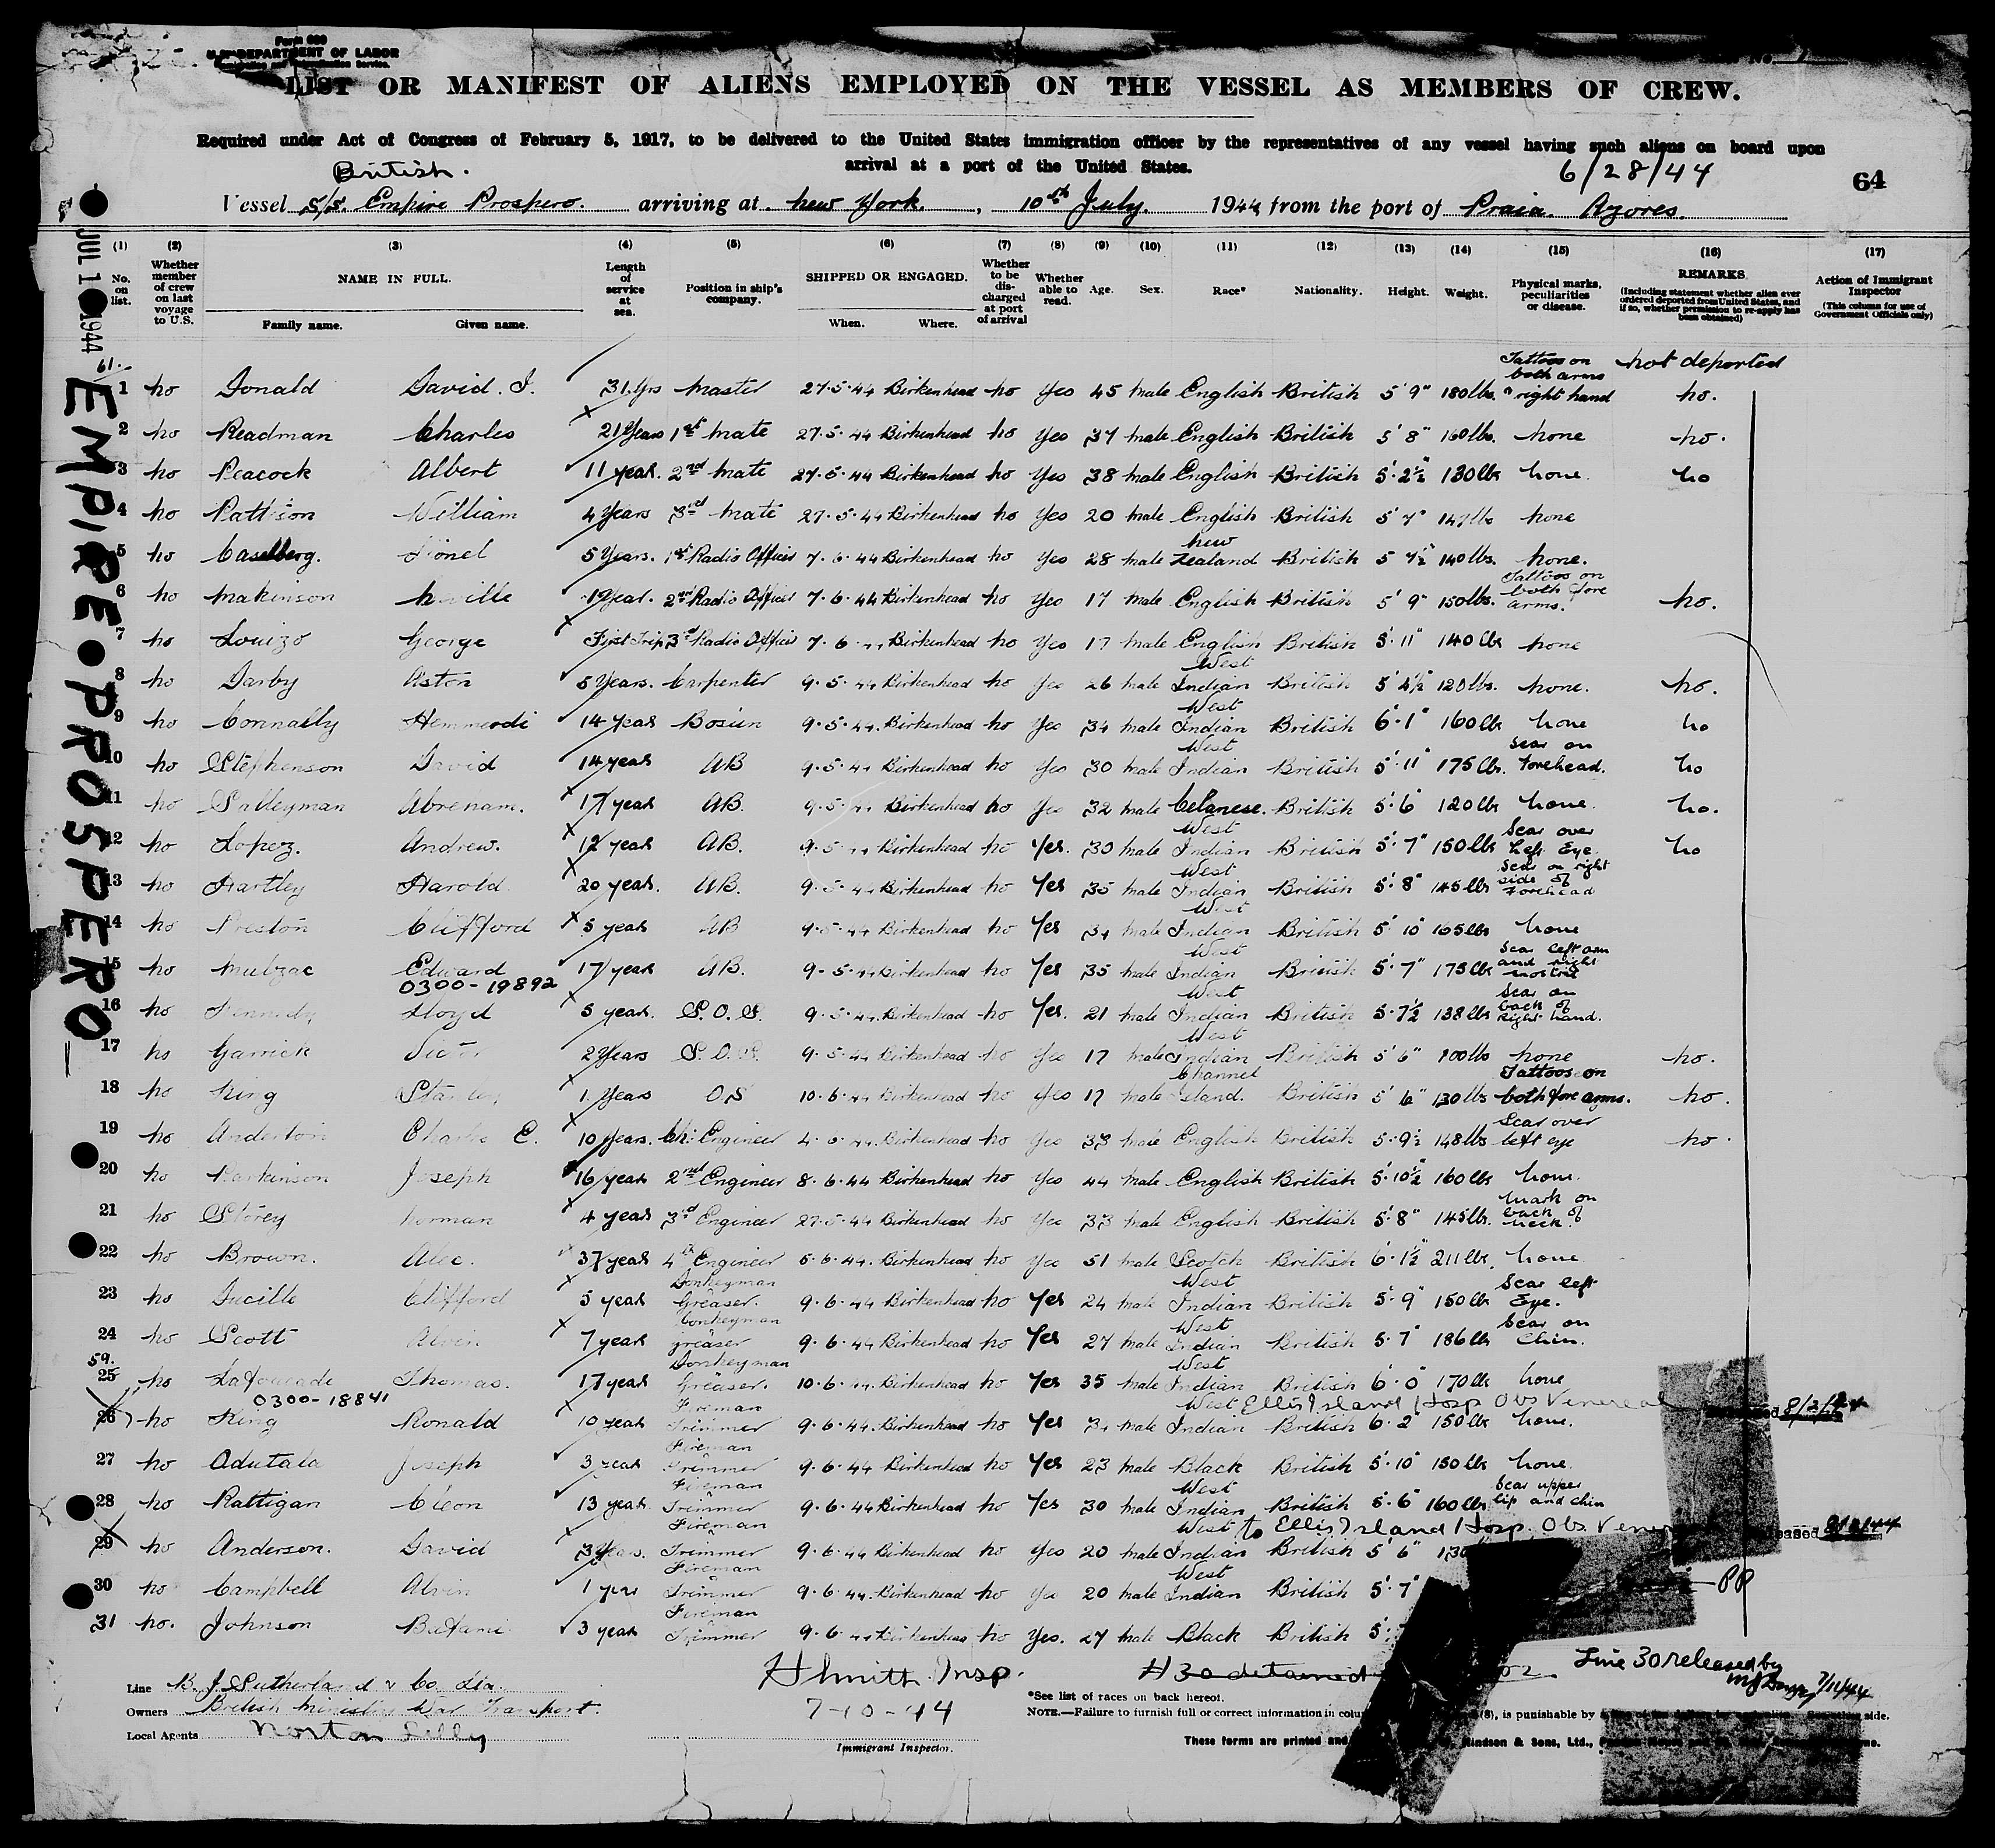 Form 680
U.S. DEPARTMENT OF LABOR
LIST OR MANIFEST OF ALIENS EMPLOYED ON THE VESSEL AS MEMBERS OF CREW.
Required under Act of Congress of February 5, 1917, to be delivered to the United States immigration officer by the representatives of any vessel having such aliens on board upon
arrival at a port of the United States.
British.
6/28/44
64
Vessel S/S. Empire Prospero. arriving at New York., 10th July. 1944, from the port of Praia. Azores.
JUL 1 1944
EMPIRE PROSPERO
(1) (2) (3) (4) (5) (6) (7) (8) (9) (10) (11) (12) (13) (14) (15) (16) (17)
No. on list. Whether member of crew on last voyage to U.S. NAME IN FULL. Family name. Given name. Length of service at sea. Position in ship's company. SHIPPED OR ENGAGED. When. Where. Whether to be discharged at port of arrival Whether able to read. Age. Sex. Race* Nationality. Height. Weight. Physical marks, peculiarities or disease. REMARKS. (Including statement whether alien ever ordered deported from United States, and if so, whether permission to re-apply has been obtained) Action of Immigrant Inspector (This column for use of Government Officials only)
Not deported
1 No Donald David. I. 31 Yrs Master 27.5.44 Birkenhead No Yes 45 Male English British 5' 9" 180lbs. Tattoos on both arms right hand No.
2 No Readman Charles 21 Years 1st Mate 27.5.44 Birkenhead No Yes 37 Male English British 5' 8" 160lbs. None No.
3 No Peacock Albert 11 year. 2nd Mate 27.5.44 Birkenhead No Yes 38 Male English British 5'.2½" 130lbs None. No
4 No Pattison William 4 Years 3rd Mate 27.5.44 Birkenhead No Yes 20 Male English British 5' 7" 147lbs None
5 No Caselberg. Lionel 5 Years. 1st Radio Officer 7.6.44 Birkenhead No Yes 28 Male New Zealand British 5 7½ 140lbs. None.
6 No Makinson Neville 1 Year. 2nd Radio Officer 7.6.44 Birkenhead No Yes 17 Male English British 5' 9" 150lbs. Tattoos on both fore arms. No.
7 No Louizo George First Trip 3rd Radio Officer 7.6.44 Birkenhead No Yes 17 Male English British 5'.11" 140 lbs None
8 No Darby Aston 5 Years. Carpenter 9.5.44 Birkenhead No Yes 26 Male West Indian British 5' 4½ 120lbs. None. No.
9 No Connally 14 Year Bosun 9.5.44. Birkenhead No Yes 34 Male West Indian British 6'.1" 160lbs None No
10 No Stephenson David 14 year AB 9.5.44 Birkenhead No Yes 30 Male West Indian British 5'.11" 175 lbs. Scar on Forehead. No
11 No Salleyman Abreham. 17 year AB. 9.5.44 Birkenhead No Yes 32 Male British 5'.6" 120lbs None. No.
12 No Lopez. Andrew. 12 year AB. 9.5.44 Birkenhead No Yes. 30 Male West Indian British 5'.7" 150lbs Scar over Left Eye. No
13 No Hartley Harold. 20 year. AB. 9.5.44 Birkenhead No Yes 35 Male West Indian British 5'.8" 145lbs Scar on right side of Forehead
14 No Preston Clifford 5 year AB 9.5.44 Birkenhead No Yes 34 Male West Indian British 5' 10" 165lbs None
15 No Mulzac Edward 17 year AB. 9.5.44 Birkenhead No Yes 35 Male West Indian British 5'.7" 175lbs Scar left arm and right nostril
0300-19892
16 No Kennedy Lloyd 5 year. S.O.S. 9.5.44 Birkenhead No Yes. 21 Male West Indian British 5.7½ 138lbs Scar on back of Right hand.
17 No Garrick Victor 2 Years S.O.S. 9.5.44 Birkenhead No Yes 17 Male West Indian British 5' 6" 100lbs None No.
18 No King Stanley 1. Years O.S 10.6.44 Birkenhead No Yes 17 Male Channel Island. British 5' 6" 130lbs Tattoos on both fore arms. No.
19 No Anderton Charles E. 10 Years. Ch: Engineer 4.6.44. Birkenhead No Yes 33 Male English British 5.9½ 148lbs Scar over left eye No.
20 No Parkinson Joseph 16 year 2nd Engineer 8.6.44 Birkenhead No Yes 44 Male English British 5'.10½ 160lbs None.
21 No Storey Norman 4 year 3rd Engineer 27.5.44 Birkenhead No Yes 33 Male English British 5'.8" 145lbs. Mark on back of neck.
22 No Brown. Alec. 37 year 4th Engineer 5.6.44. Birkenhead No Yes 51 Male Scotch British 6'.1½ 211lbs. None
23 No Lucille Clifford 5 year Donkeyman Greaser. 9.6.44 Birkenhead No Yes 24 Male West Indian British 5.9" 150lbs Scar left Eye.
24 No Scott Alvin 7 year Donkeyman greaser 9.6.44 Birkenhead No Yes 27 Male West Indian British 5.7" 186lbs Scar on Chin.
25 No Lafourcade Thomas. 17 year Donkeyman Greaser. 10.6.44 Birkenhead No Yes 35 Male West Indian British 6'.0" 170lbs None
0300-18841
Ellis Island Hosp Obs Venereal
26 No King Ronald 10 year Fireman Trimmer 9.6.44. Birkenhead No Yes 34 Male West Indian British 6.2" 150lbs None.
27 No Adutala Joseph 3 year Fireman Trimmer 9.6.44 Birkenhead No Yes 23 Male Black British 5'.10" 150lbs None.
28 No Rattigan Cleon 13 year. Fireman Trimmer 9.6.44 Birkenhead No Yes 30 Male West Indian British 5.6" 160lbs Scar upper lip and chin
to Ellis Island Hosp. Obs
29 No Anderson. David 3 Years. Fireman Trimmer 9.6.44 Birkenhead No Yes 20 Male West Indian British 5' 6" 130
30 No Campbell Alvin 1 year Fireman Trimmer 9.6.44. Birkenhead No Yes 20 Male West Indian British 5'.7" PP
31 No. Johnson 3 year Fireman Trimmer 9.6.44 Birkenhead No Yes. 27 Male Black British
Line B. J. Sutherland & Co. Ltd.
Owners British Ministry War Transport.
Local Agents Norton Lilly
Insp.
7-10-44
Immigrant Inspector.
# 30 detained
Line 30 released by
7/11/44
*See list of races on back hereof.
NOTE.—Failure to furnish full or correct information in (8), is punishable by side.
These forms are printed and Hindson & Sons, Ltd.,